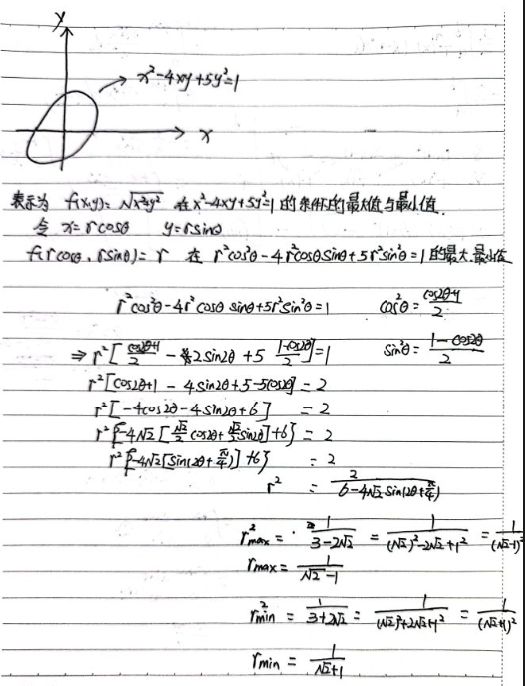 y
x²-4xy+5y²=1
x
表示为 f(x,y)=√x²+y² 在 x²-4xy+5y²=1 的条件的最大值与最小值.
令 x=rcosθ y=rsinθ
f(rcosθ, rsinθ)= r 在 r²cos²θ-4r²cosθsinθ+5r²sin²θ=1 的最大.最小值
r²cos²θ-4r²cosθ sinθ+5r²sin²θ=1 cos²θ=(cos2θ+1)/2
⇒ r²[(cos2θ+1)/2 - 2sin2θ + 5 (1-cos2θ)/2]=1 sin²θ=(1-cos2θ)/2
r²[cos2θ+1 - 4sin2θ+5-5cos2θ] = 2
r²[-4cos2θ-4sin2θ+6] = 2
r²{-4√2[√2/2 cos2θ+√2/2 sin2θ]+6} = 2
r²{-4√2[sin(2θ+π/4)]+6} = 2
r² = 2/(6-4√2 sin(2θ+π/4))
r²max = 1/(3-2√2) = 1/((√2)²-2√2+1²) = 1/(√2-1)²
rmax = 1/(√2-1)
r²min = 1/(3+2√2) = 1/((√2)²+2√2+1²) = 1/(√2+1)²
rmin = 1/(√2+1)